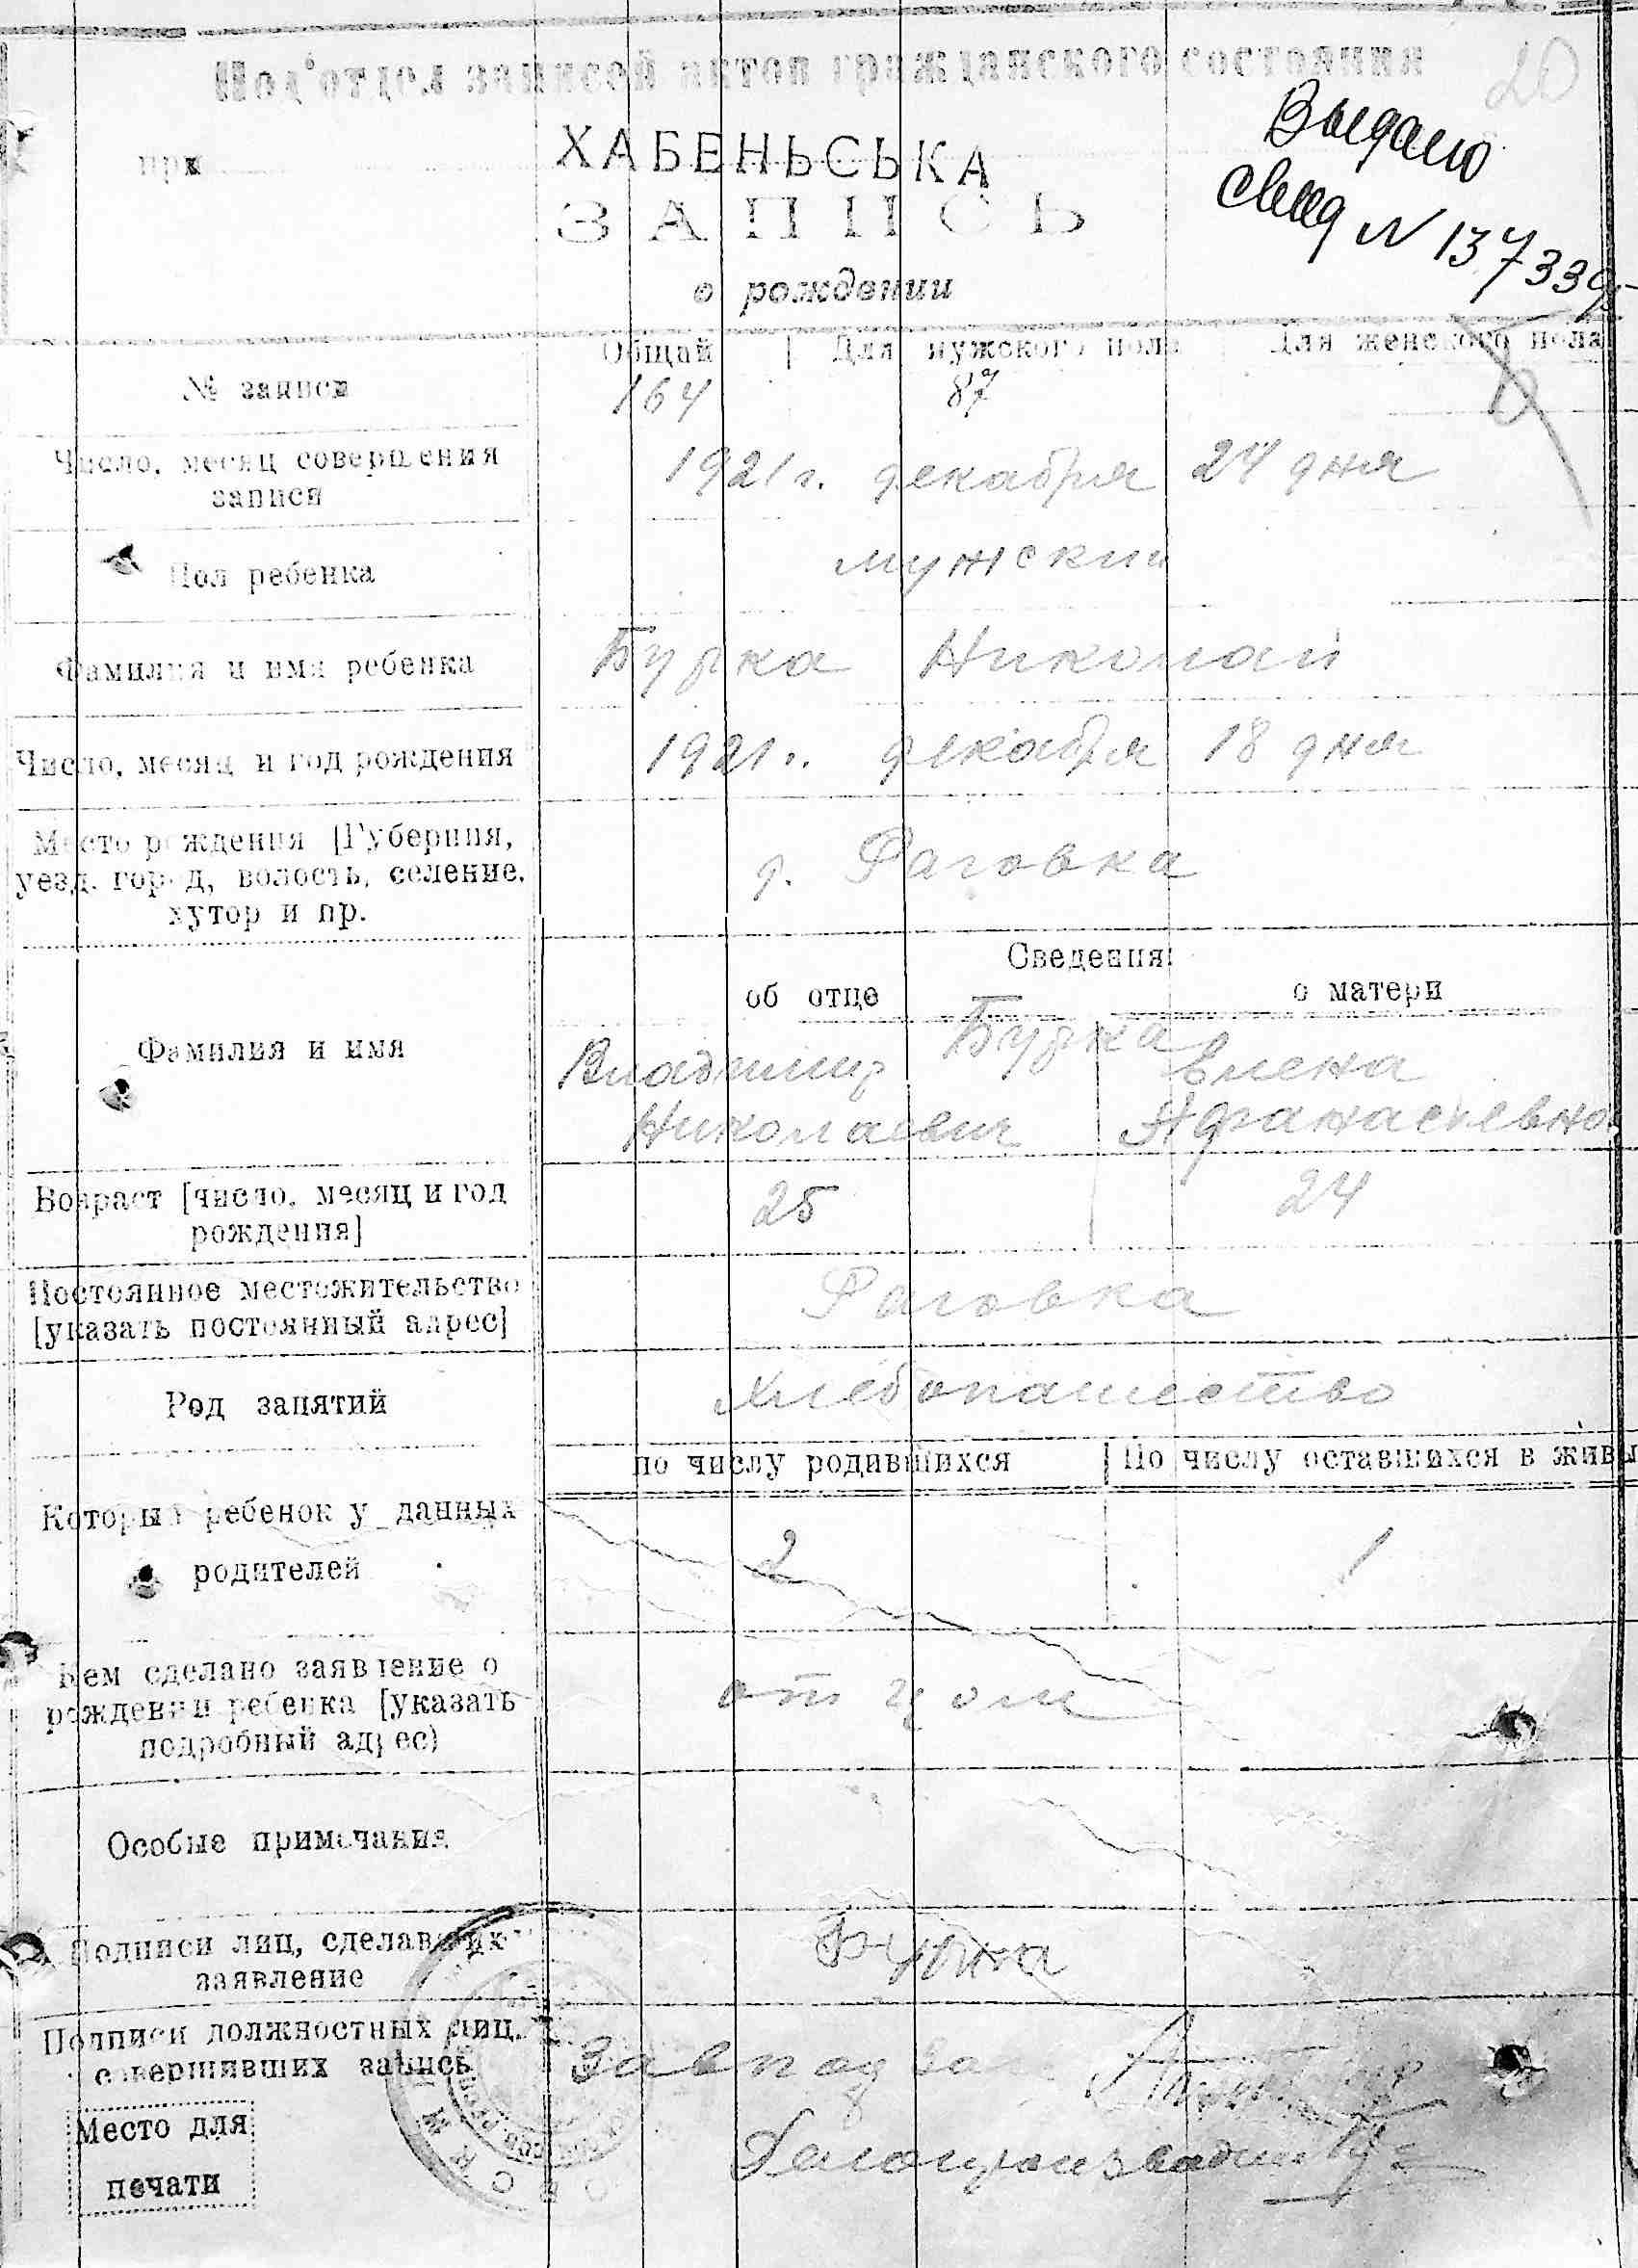 20
Под'отдел записей актов гражданского состояния
Выдано
при ХАБЕНЬСЬКА
свид N 137339
ЗАПИСЬ
о рождении
Общай | Для мужского пола Для женского пола
№ записи 164 87
Число, месяц совершения 1921 г. декабря 24 дня
записи
Пол ребенка мужский
Фамилия и имя ребенка Бурка Николай
Число, месяц и год рождения 1921 г. декабря 18 дня
Место рождения [Губерния,
уезд, город, волость, селение, д. Раговка
хутор и пр.
Сведения:
об отце о матери
Бурка
Фамилия и имя Владимир Елена
Николаевич Афанасиевна
Возраст [число, месяц и год 25 24
рождения]
Постоянное местожительство Раговка
[указать постоянный адрес]
Род занятий Хлебопашество
по числу родившихся | По числу оставшихся в живы
Который ребенок у данных
родителей 2 1
Кем сделано заявление о
рождении ребенка [указать отцом
подробный адрес)
Особые примечания
Подписи лиц, сделавших Бурка
заявление
Подписи должностных лиц,
совершивших запись Завпод
Место для
Делопроизводит
печати